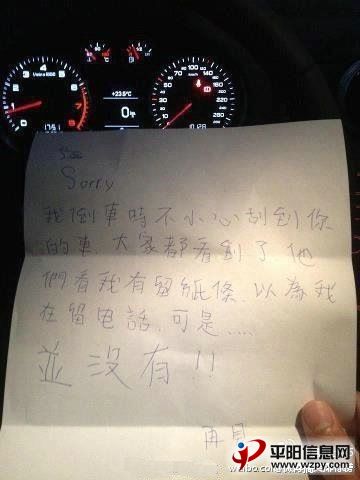 1/min x 1000
+23.5°C
Sorry
我倒車時不小心刮到你
的車,大家都看到了他
們看我有留紙條,以為我
在留电話,可是.....
並沒有!!
再見
平阳信息网
www.wzpy.com